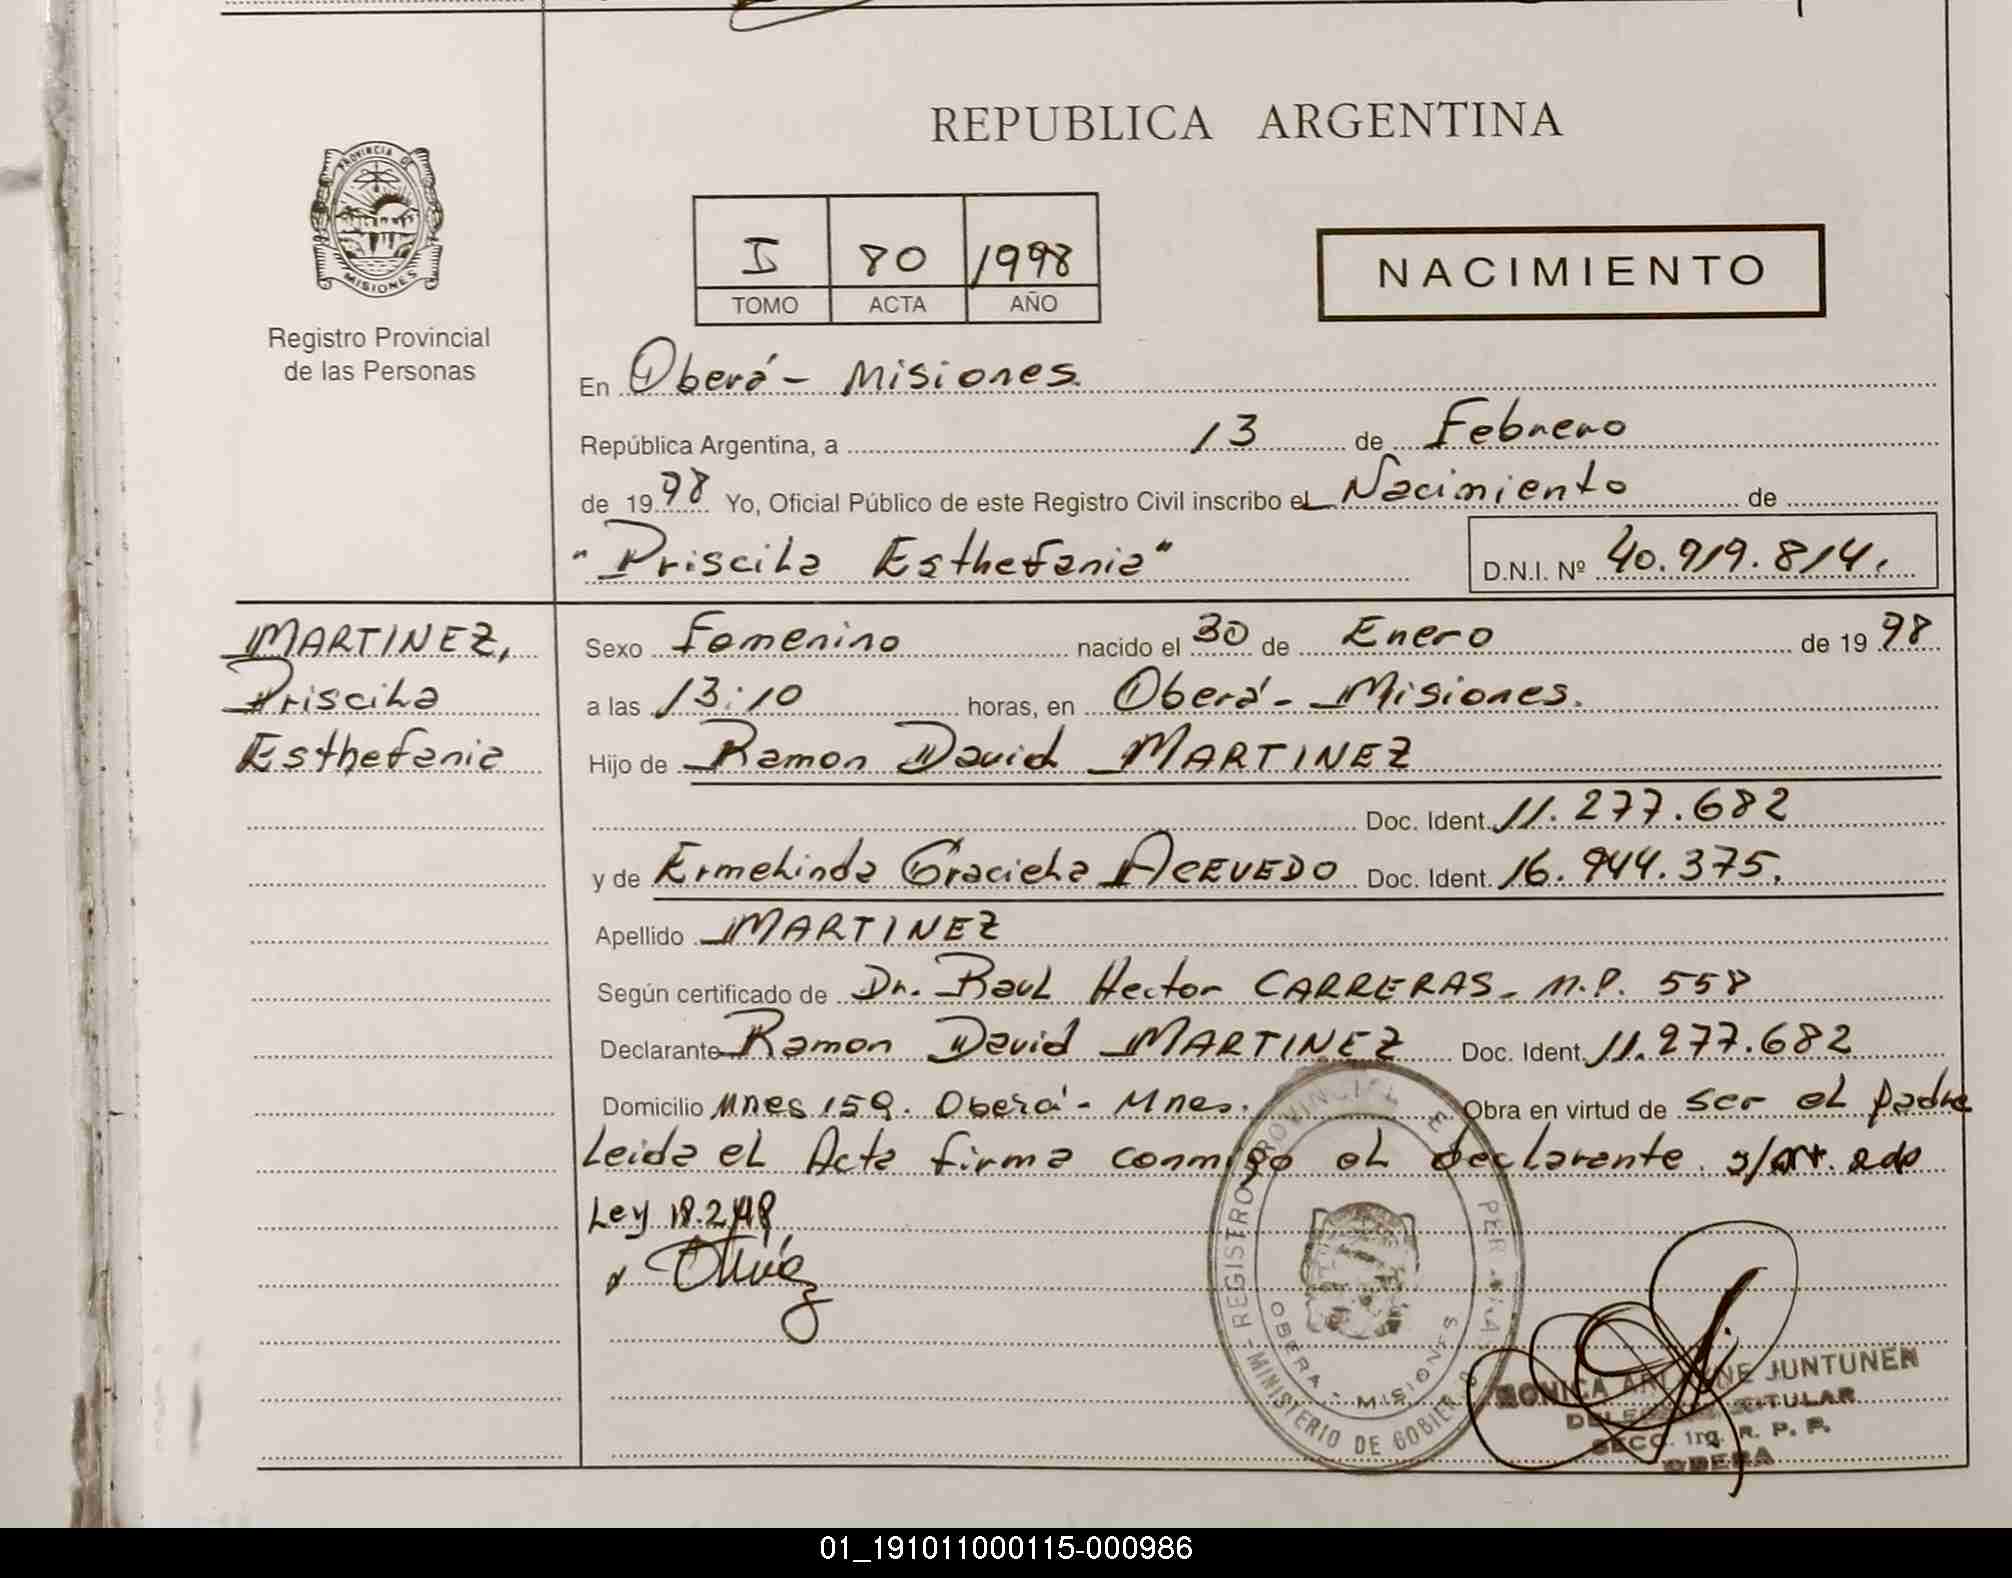 REPUBLICA ARGENTINA
PROVINCIA DE
MISIONES
Registro Provincial
de las Personas
I 80 1998
TOMO ACTA AÑO
NACIMIENTO
En Oberá - Misiones.
República Argentina, a 13 de Febrero
de 1998 Yo, Oficial Público de este Registro Civil inscribo el Nacimiento de
"Priscila Esthefania" D.N.I. Nº 40.919.814.
MARTINEZ,
Priscila
Esthefania
Sexo Femenino nacido el 30 de Enero de 1998
a las 13:10 horas, en Oberá - Misiones.
Hijo de Ramon David MARTINEZ
Doc. Ident. 11.277.682
y de Ermelinda Graciela ACEVEDO Doc. Ident. 16.944.375.
Apellido MARTINEZ
Según certificado de Dr. Raul Hector CARRERAS - M.P. 558
Declarante Ramon David MARTINEZ Doc. Ident. 11.277.682
Domicilio Mnes 159. Oberá - Mnes. Obra en virtud de ser el padre
Leida el Acta firma conmigo el declarante.
Ley 18.248
REGISTRO PROVINCIAL
MINISTERIO DE GOBIERNO
OBERA - MISIONES
MONICA JUNTUNEN
TITULAR
SECC. 1ra. R. P. P.
OBERA
01_191011000115-000986